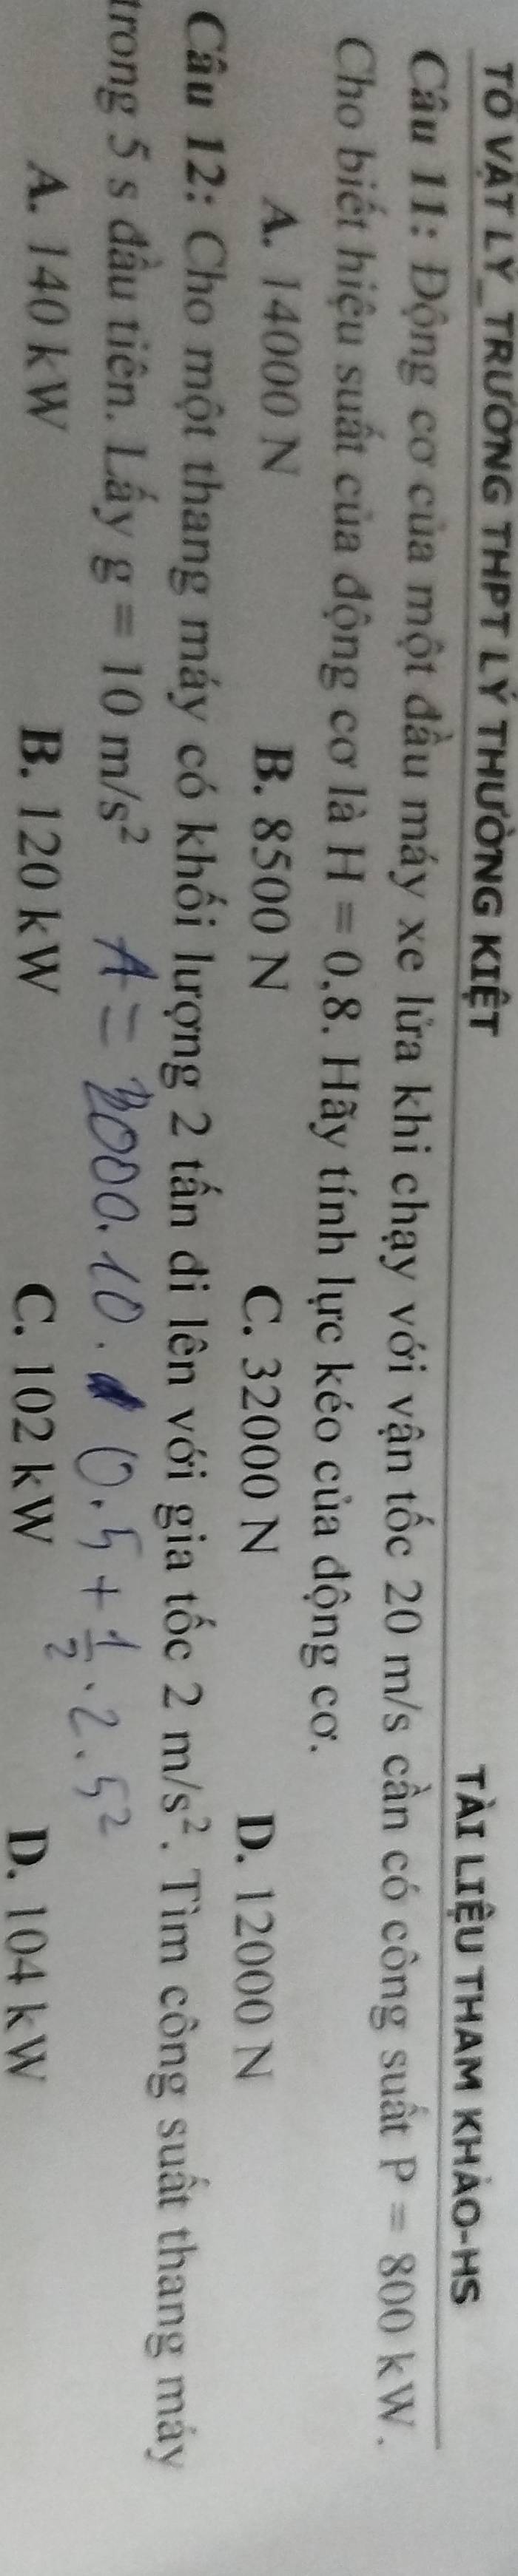 TỔ VẬT LÝ_TRƯỜNG THPT LÝ THƯỜNG KIỆT TÀI LIỆU THAM KHẢO-HS
Câu 11: Động cơ của một đầu máy xe lửa khi chạy với vận tốc 20 m/s cần có công suất P = 800 kW.
Cho biết hiệu suất của động cơ là H = 0,8. Hãy tính lực kéo của động cơ.
A. 14000 N B. 8500 N C. 32000 N D. 12000 N
Câu 12: Cho một thang máy có khối lượng 2 tấn đi lên với gia tốc 2 m/s². Tìm công suất thang máy
trong 5 s đầu tiên. Lấy g = 10 m/s² A = 2000.10. 0.5 + 1/2 . 2 . 5²
A. 140 kW B. 120 kW C. 102 kW D. 104 kW